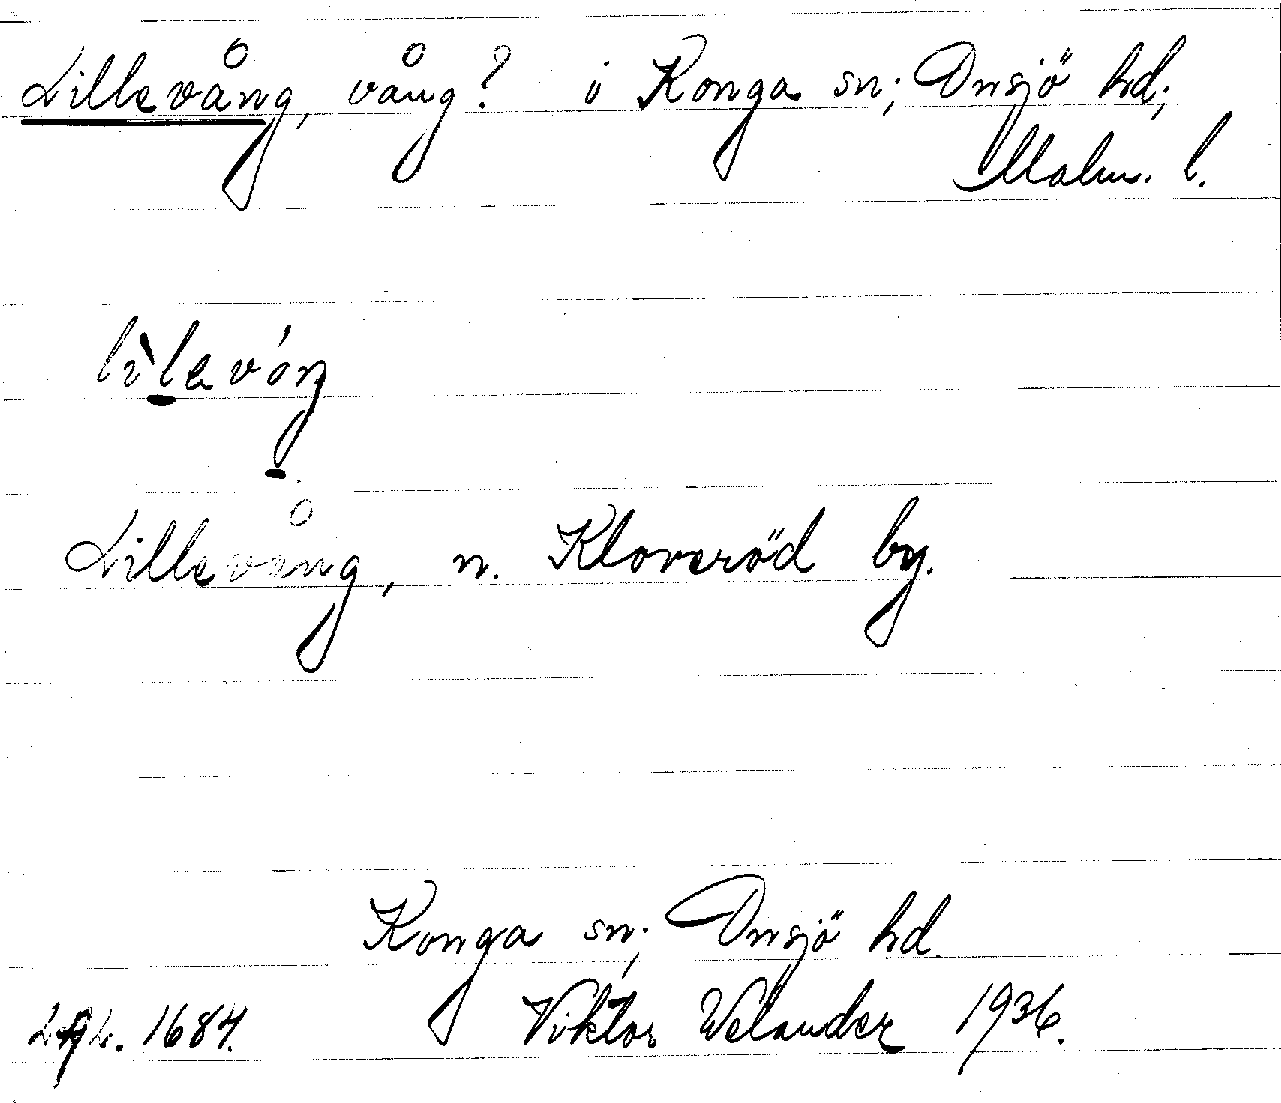 Lillevång, vång? i Konga sn; Onsjö hd;
Malm. l.
lìlevóŋ
Lillevång, n. Kloveröd by.
Konga sn; Onsjö hd.
1684. Viktor Welander 1936.